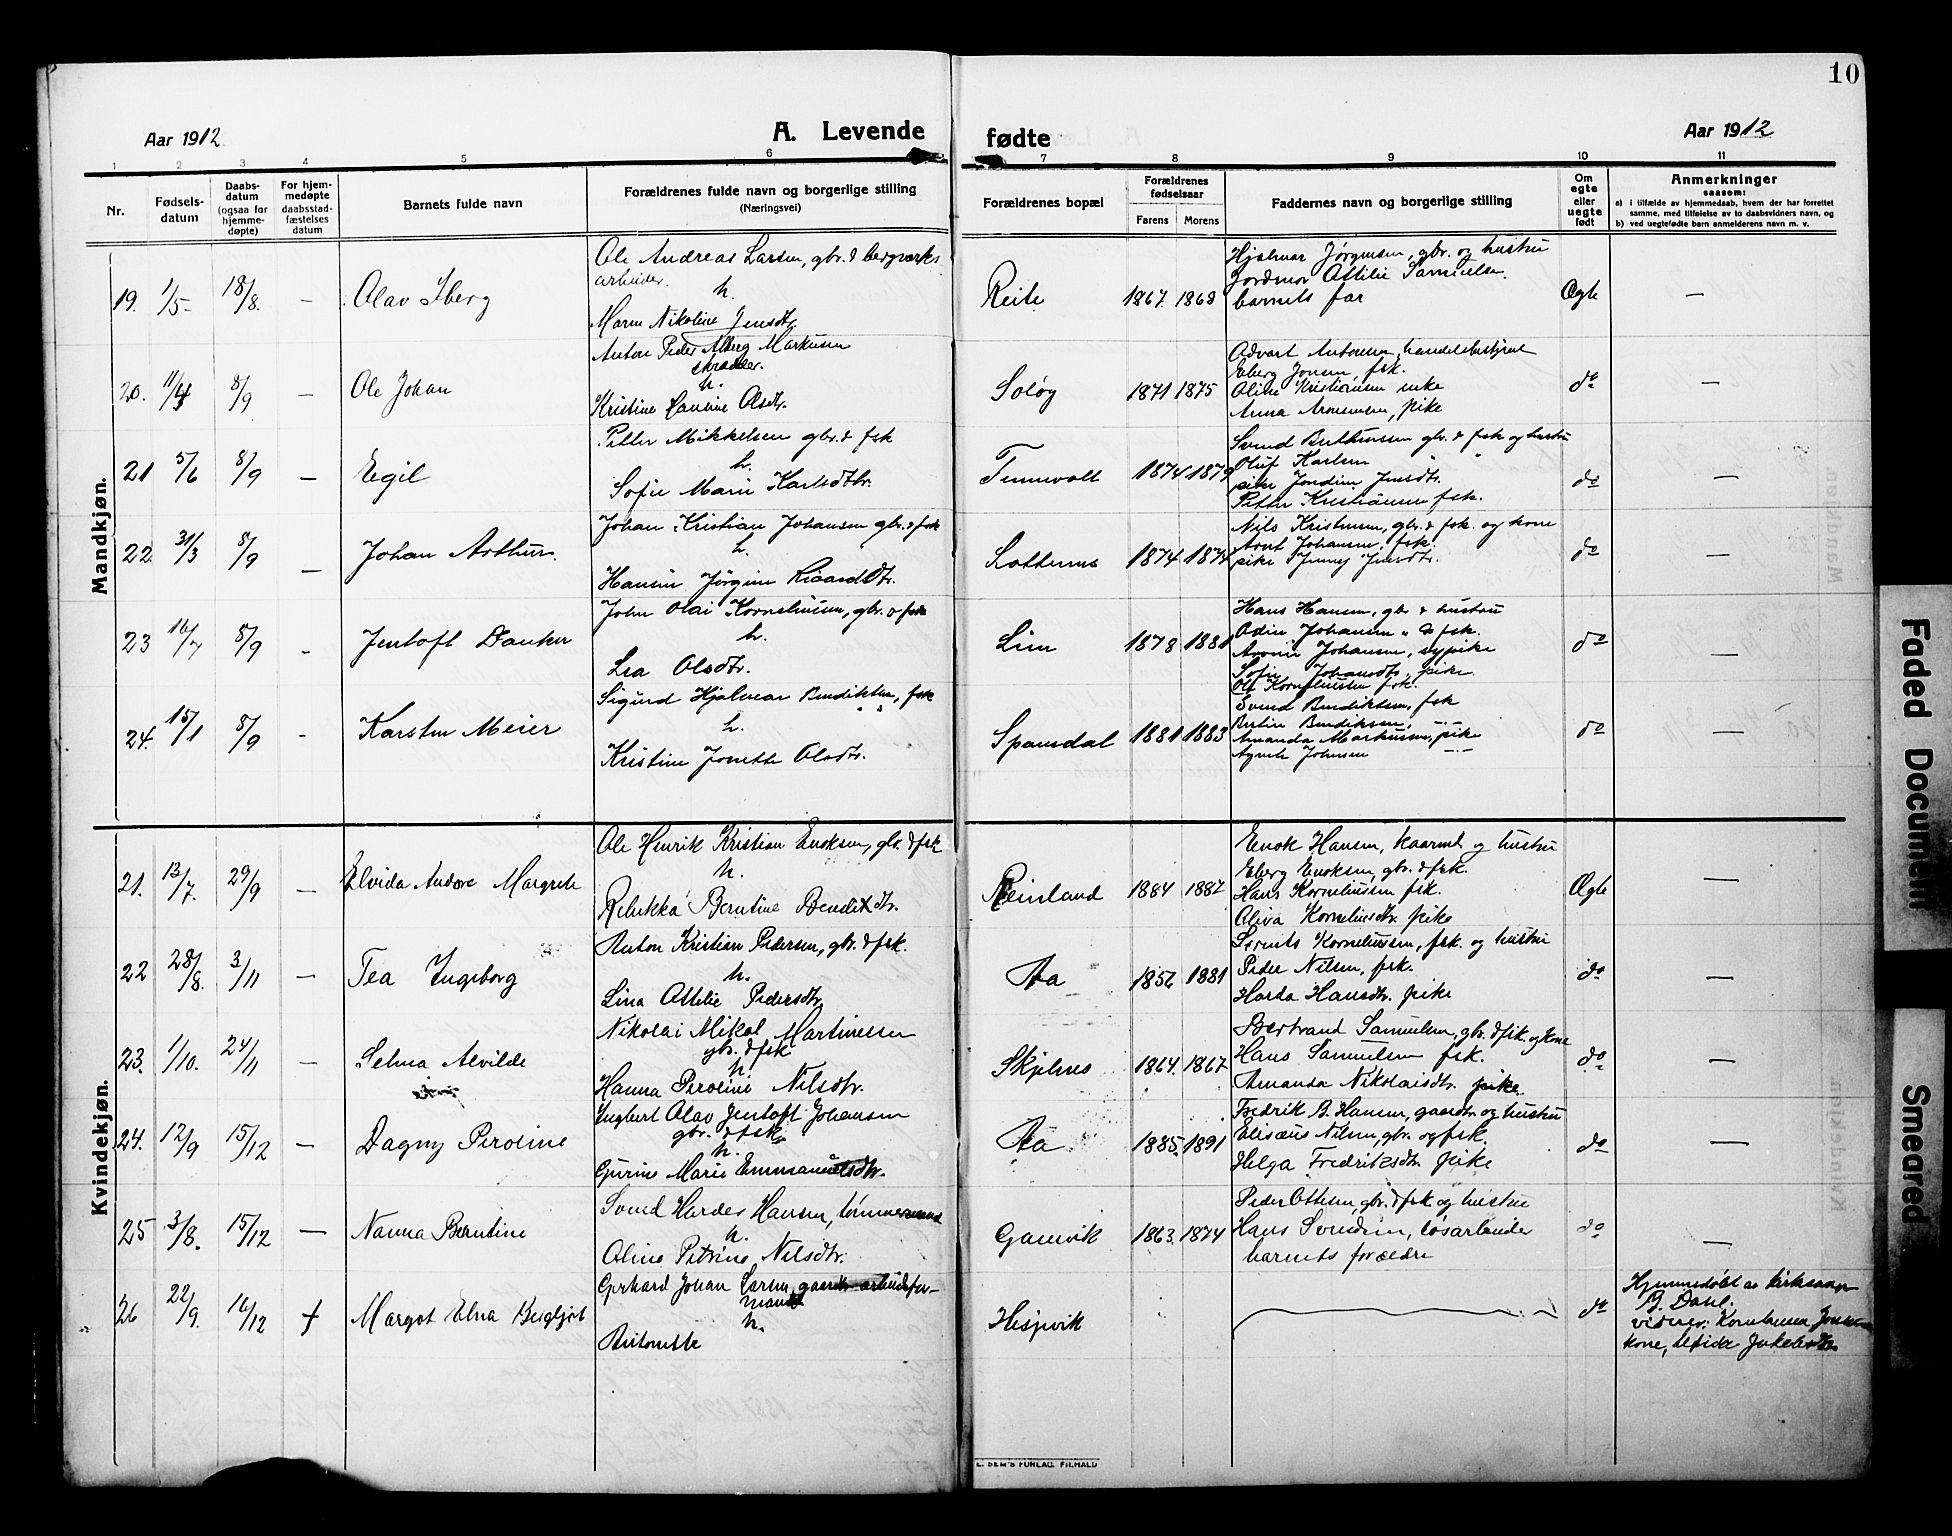 10
Aar 1912.
A. Levende
fødte
Aar 1912
1 2 3 4 5 6 7 8 9 10 11
Nr.
Fødsels-
datum
Daabs-
datum
(ogsaa for
hjemme-
døpte)
For hjem-
medøpte
daabsstad-
fæstelses
datum
Barnets fulde navn
Forældrenes fulde navn og borgerlige stilling
(Næringsvei)
Forældrenes bopæl
Forældrenes
fødselsaar
Farens Morens
Faddernes navn og borgerlige stilling
Om
egte
eller
uegte
født
Anmerkninger
saasom:
a) i tilfælde av hjemmedaab, hvem der har forrettet
samme, med tilføielse av to daabsvidners navn, og
b) ved uegtefødte barn anmelderens navn m. v.
Mandkjøn.
19. 1/5 18/8. – Olav Iberg
Ole Andreas Larsen, gbr. & bergverks
arbeider.
h.
Maren Nikoline Jensdtr.
Reite 1867. 1868
Hjalmar Jørgensen, gbr. og hustru
Jordmor Ottilie Samuelsen
barnets far
Ægte –
20. 8/9 – Ole Johan
Anton Peder Markusen
skrædder.
h.
Kristine Hansine Olsdtr.
Soløy 1871 1875
Edvart Antonsen, handelsbestyrer
Eberg Jonsen, fsk.
Oline Kristiansen enke
Anna Aronsen, pike
do –
21 5/6 8/9 – Egil
Petter Mikkelsen gbr. & fsk
h.
Sofie Marie Karlsdtr.
Tennevolt 1874 1879
Svend Berthinssen gbr. & fsk og hustru
Oluf Karlsen " "
pike Jondine Jensdtr.
Petter Kristiansen fsk.
do –
22. 31/3 8/9 – Johan Arthur.
Johan Kristian Johansen gbr. & fsk
h.
Hansine Jørgine Ricardsdtr.
Lotternes 1874 1874
Nils Kristensen, gbr. & fsk. og kone
Arnt Johansen, fsk.
pike Jenny Jensdtr.
do –
23 16/7 8/9 – Jentoft Danker
John Olai Korneliussen, gbr. & fsk
h.
Lea Olsdtr.
Lien 1878. 1881
Hans Hansen, gbr & hustru
Odin Johansen " & fsk.
Johansen, sypike
Sofie Johansdtr, pike
Olf Korneliussen fsk.
do –
24. 15/1 8/9 – Karsten Meier
Sigurd Hjalmar Bendiktsen, fsk
h.
Kristine Jonette Olsdtr.
Spansdal 1881 1883
Svend Bendiktsen, fsk
Bertin Bendiksen, –"–
Amanda Markussen, pike
Agnete Johnsen –"–
do –
Kvindekjøn.
21. 13/7 29/9 – Elvida Andore Margrete
Ole Henrik Kristian Enoksen, gbr. & fsk
h.
Rebekka Berntine Bendiktdtr.
Reinland 1884 1887
Enok Hansen, kaarmd. og hustru
Eberg Enoksen, gbr. & fsk.
Hans Korneliussen fsk.
Oliva Korneliusdtr. pike
Ægte –
22 28/8. 3/11 – Tea Ingeborg
Anton Kristian Pedersen, gbr. & fsk.
h.
Lina Ottilie Pedersdtr.
Aa 1856 1881
Korneliussen, fsk. og hustru
Peder Nilsen, fsk.
Harda Hansdtr. pike
do –
23. 1/10. 24/11 – Selma Alvilde
Nikolai Mikal Martinessen
gbr. & fsk
h.
Hanna Peroline Nilsdtr.
Skjelnes 1864. 1867
Bertrand Samuelsen, gbr. & fsk. og kone
Hans Samuelsen fsk.
Amanda Nikolaisdtr. pike.
do –
24. 12/9 15/12 – Dagny Peroline
Ingbert Olav Jentoft Johansen
gbr. & fsk
h.
Gurine Marie Emmanuelsdtr.
Aa 1885. 1891
Fredrik B. Hansen, gaardbr og hustru
Elisæus Nilsen, gbr. og fsk.
Helga Fredriksdtr. pike
do –
25 3/8. 15/12 – Nanna Berntine
Svend Harder Hansen, tømmermand
h.
Oline Petrine Nilsdtr.
Gamvik 1863. 1874
Peder Ottesen, gbr. & fsk og hustru
Hans Svendsen, løsarbeider
barnets forældre
do –
26 22/9. 16/12 † Margot Elna Bergljot
Gerhard Johan Larsen, arbeidsfor-
mand
h.
Antonette
Hesjevik
do
Hjemmedøbt av kirksanger
B. Dahl.
vidner: Korneliussen
kone, Jakobsdtr.
E. SEM'S FORLAG. FR.HALD
Faded Document
Smeared